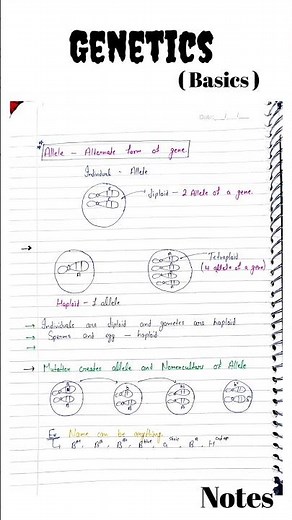 GENETICS
(Basics)
Allele - Alternate form of gene
Individuals - Allele
diploid - 2 Allele of a gene.
Tetraploid
(4 allele of a gene)
Haploid - 1 allele
→ Individuals are diploid and gametes are haploid
→ Sperms and egg - haploid
→
→ Mutation creates allele and Nomenculture of Allele
Ex Name can be anything
Notes